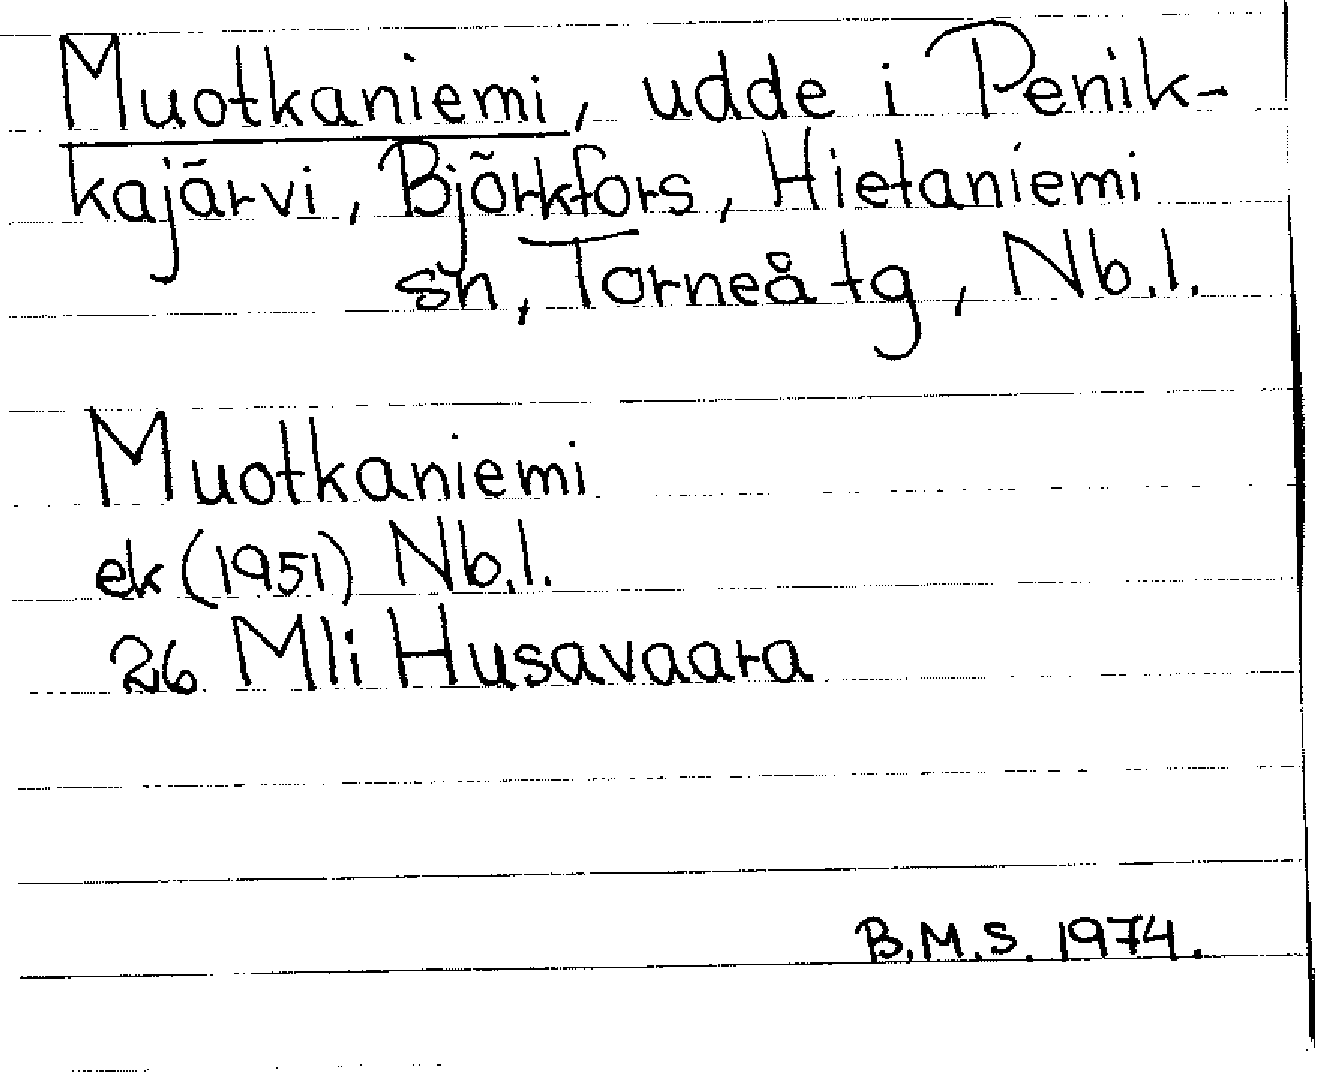 Muotkaniemi, udde i Penik-
kajärvi, Björkfors, Hietaniemi
sn, Torneå tg, Nb.l.
Muotkaniemi
ek (1951) Nb.l.
26 Mli Husavaara
B.M.S. 1974.